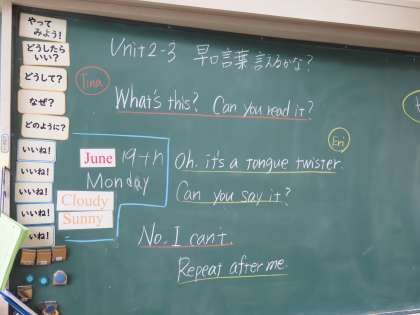 やって
みよう!
どうしたら
いい?
どうして?
なぜ?
どのように?
いいね!
いいね!
いいね!
いいね!
いいね!
Unit2-3 早口言葉言えるかな?
Tina
What's this? Can you read it?
Eri
June 19th
Monday
Cloudy
Sunny
Oh. it's a tongue twister.
Can you say it?
No. I can't.
Repeat after me.